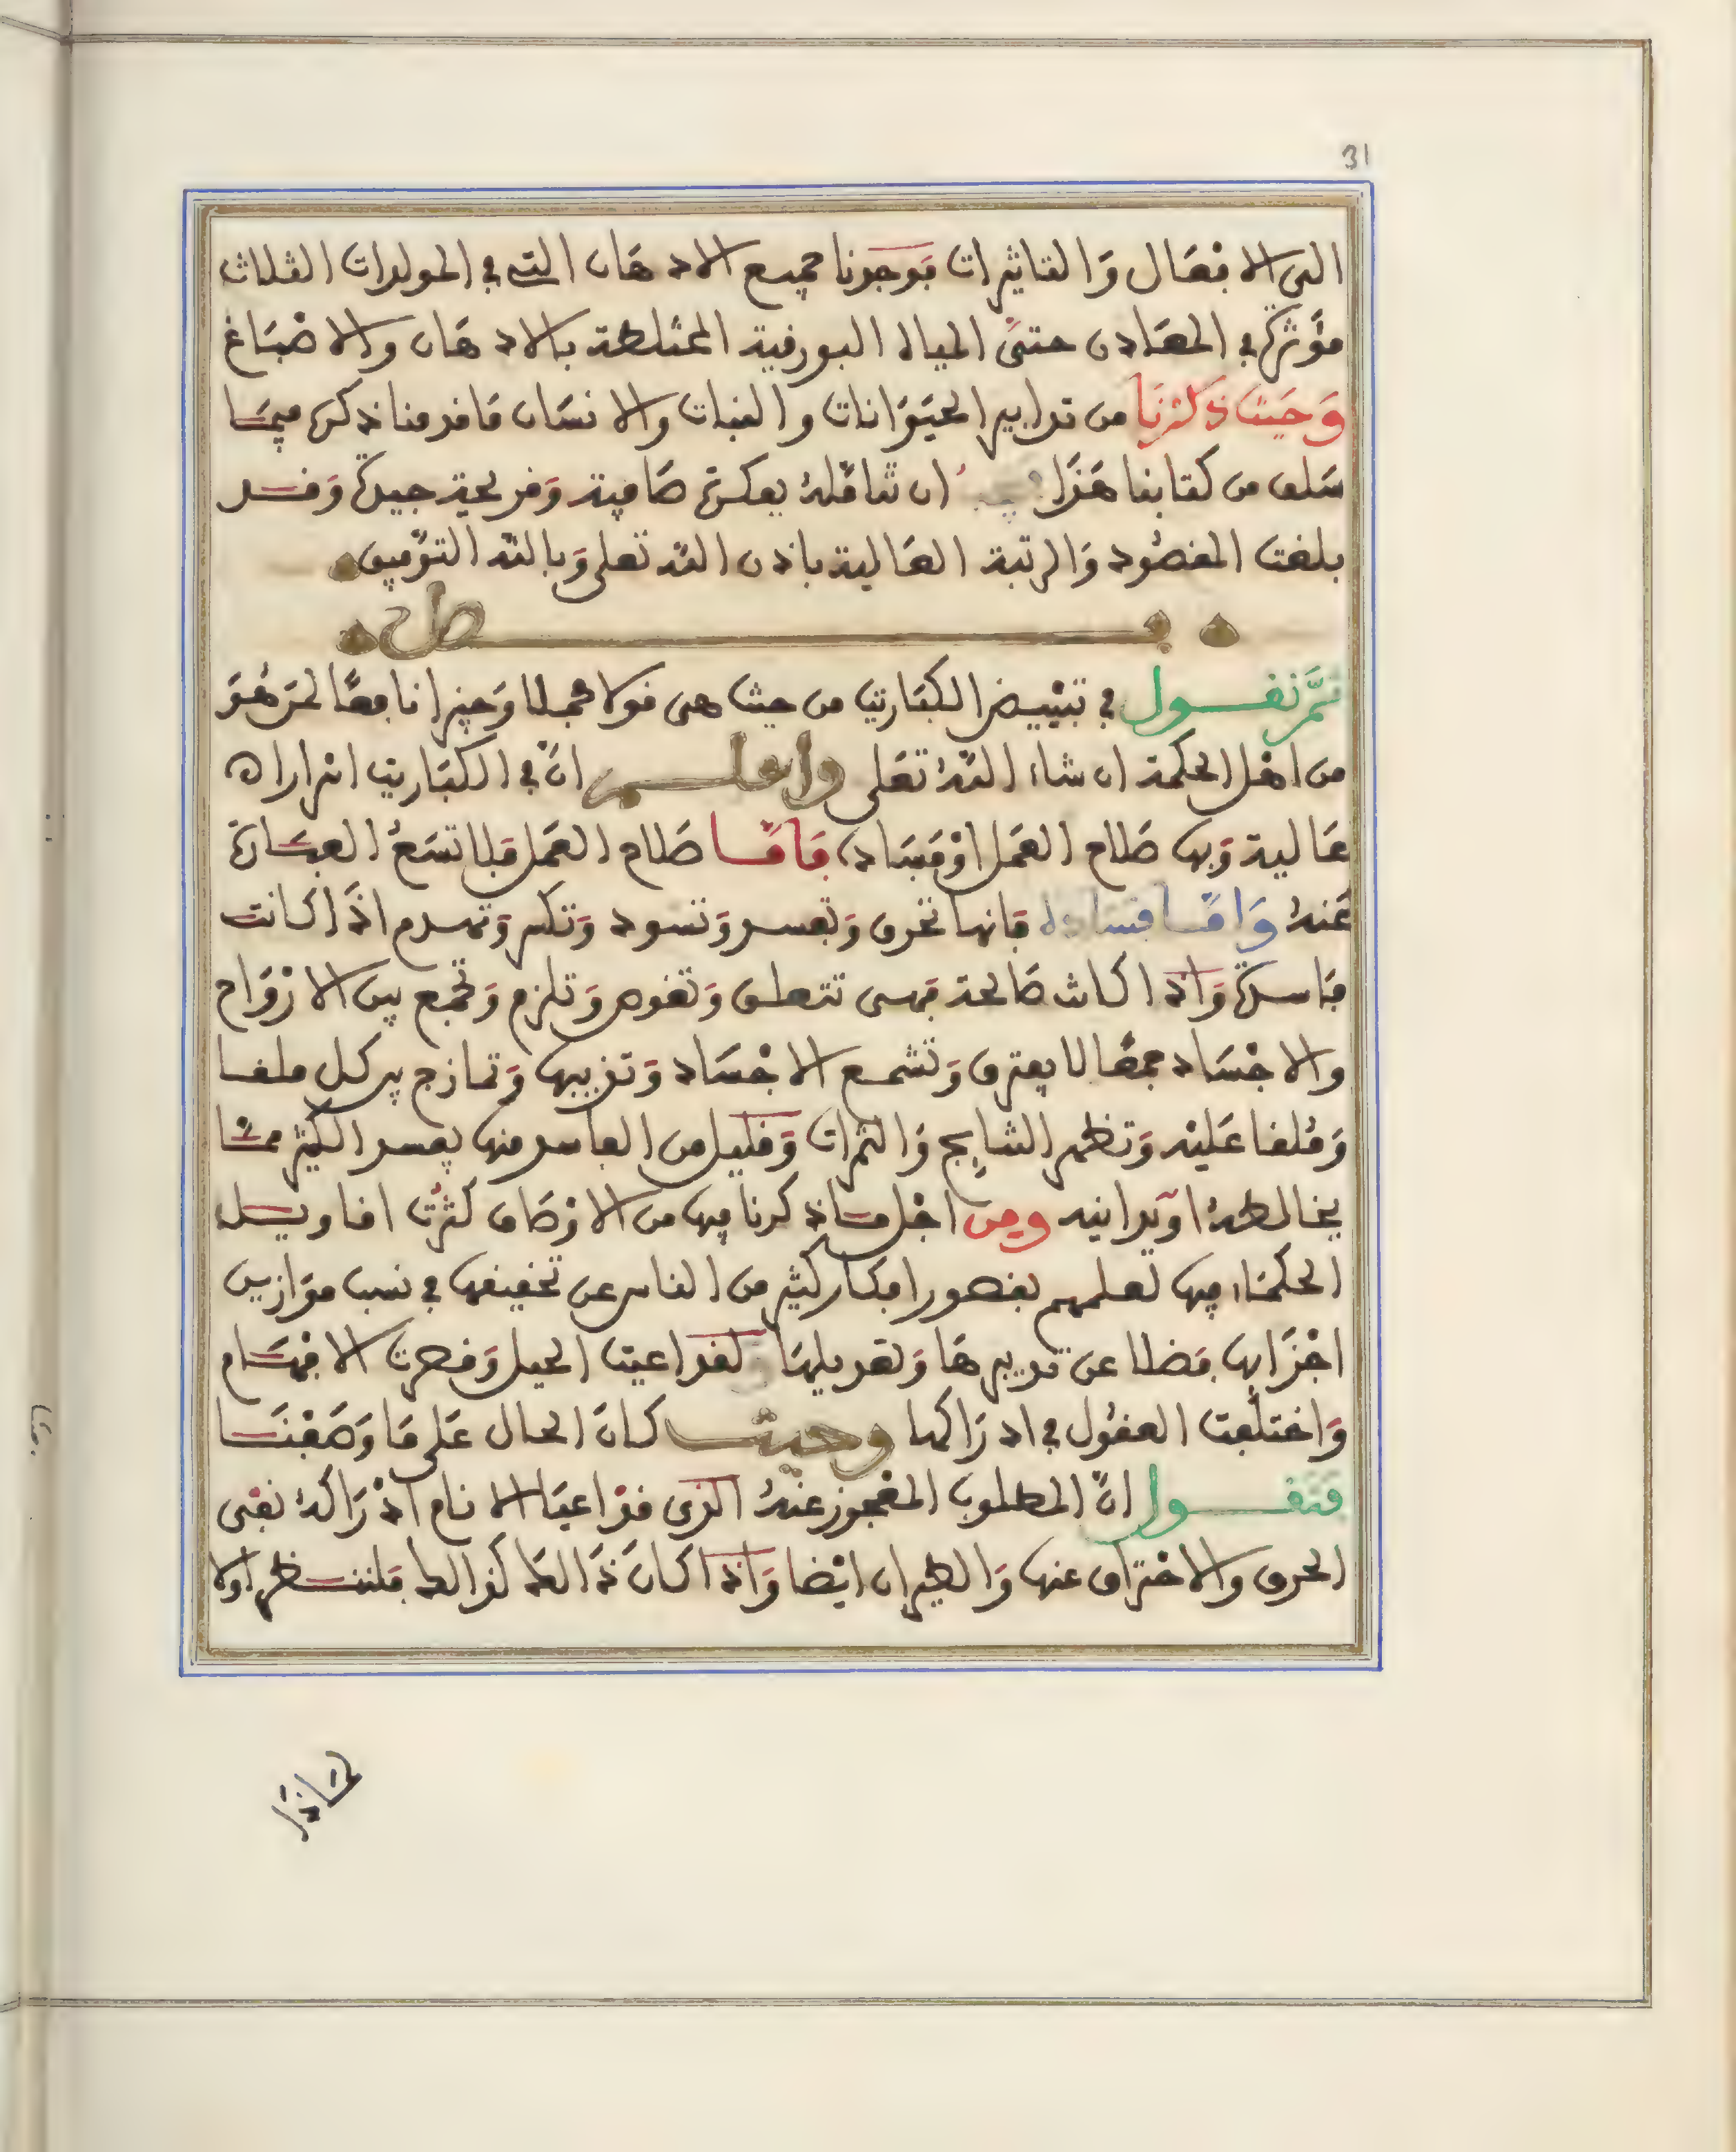 31
الى الافعال والتاثيرات فوجدنا جميع الادهان التي في المولدات الثلاث
مؤثرة في المعادن حتى المياه البورقية المختلطة بالادهان والاصباغ
وحيث ذكرنا من تدابير الحيوانات والنبات والانسان ما قدمنا ذكره فيما
سلف من كتابنا هذا ان تتامله بفكرة صافية وقريحة جيدة وقد
بلغت المقصود والرتبة العالية باذن الله تعلى وبالله التوفيق
فصل
ثم نقول في تبييض الكباريت من حيث هى قولا مجملا وجيزا نافعا لمن هو
من اهل الحكمة ان شاء الله تعلى واعلم ان في الكباريت اسرارا
عالية وبها صلاح العمل او فساده فاما صلاح العمل فلا تسع العبارة
عنه واما فساده فانها تحرق وتفسد وتسود وتكسر وتهدم اذا كانت
فاسدة واذا كانت صالحة فهى تتعلق وتغوص وتلزم وتجمع بين الارواح
والاجساد جمعا لا يفترق وتشمع الاجساد وتذيبها وتمازج بين كل ملقا
وملقا عليه وتظهر النتايج والثمرات وقليل من الفاسد منها يفسد الكثير مما
يخالطه او يدانيه ومن اجل ما ذكرنا فيها من الاوصاف كثرت اقاويل
الحكماء فيها لعلمهم بقصور افكار كثير من الناس عن تحقيقها في نسب موازين
اجزايها فضلا عن تدبيرها وتعديلها لقد اعيت الحيل وقصرت الافهام
واختلفت العقول في ادراكها وحيث كان الحال على ما وصفنا
فنقول ان المطلوب المعجوز عنه الذى قد اعيا الانام ادراكه نفى
الحرق والاحتراق عنها والطيران ايضا واذا كان ذالك كذالك فلننظر اولا